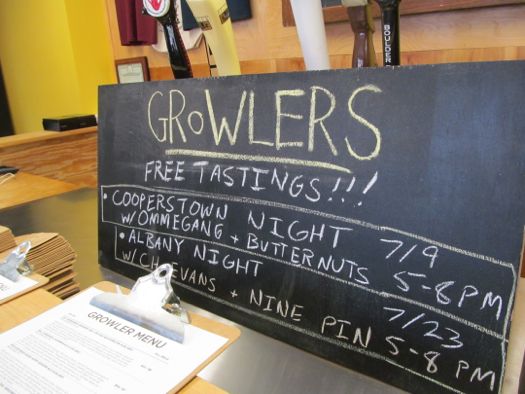 BOULDER
GROWLERS
FREE TASTINGS!!!
• COOPERSTOWN NIGHT 7/9
W/OMMEGANG + BUTTERNUTS 5-8PM
• ALBANY NIGHT 7/23
W/CH EVANS + NINE PIN 5-8 PM
GROWLER MENU